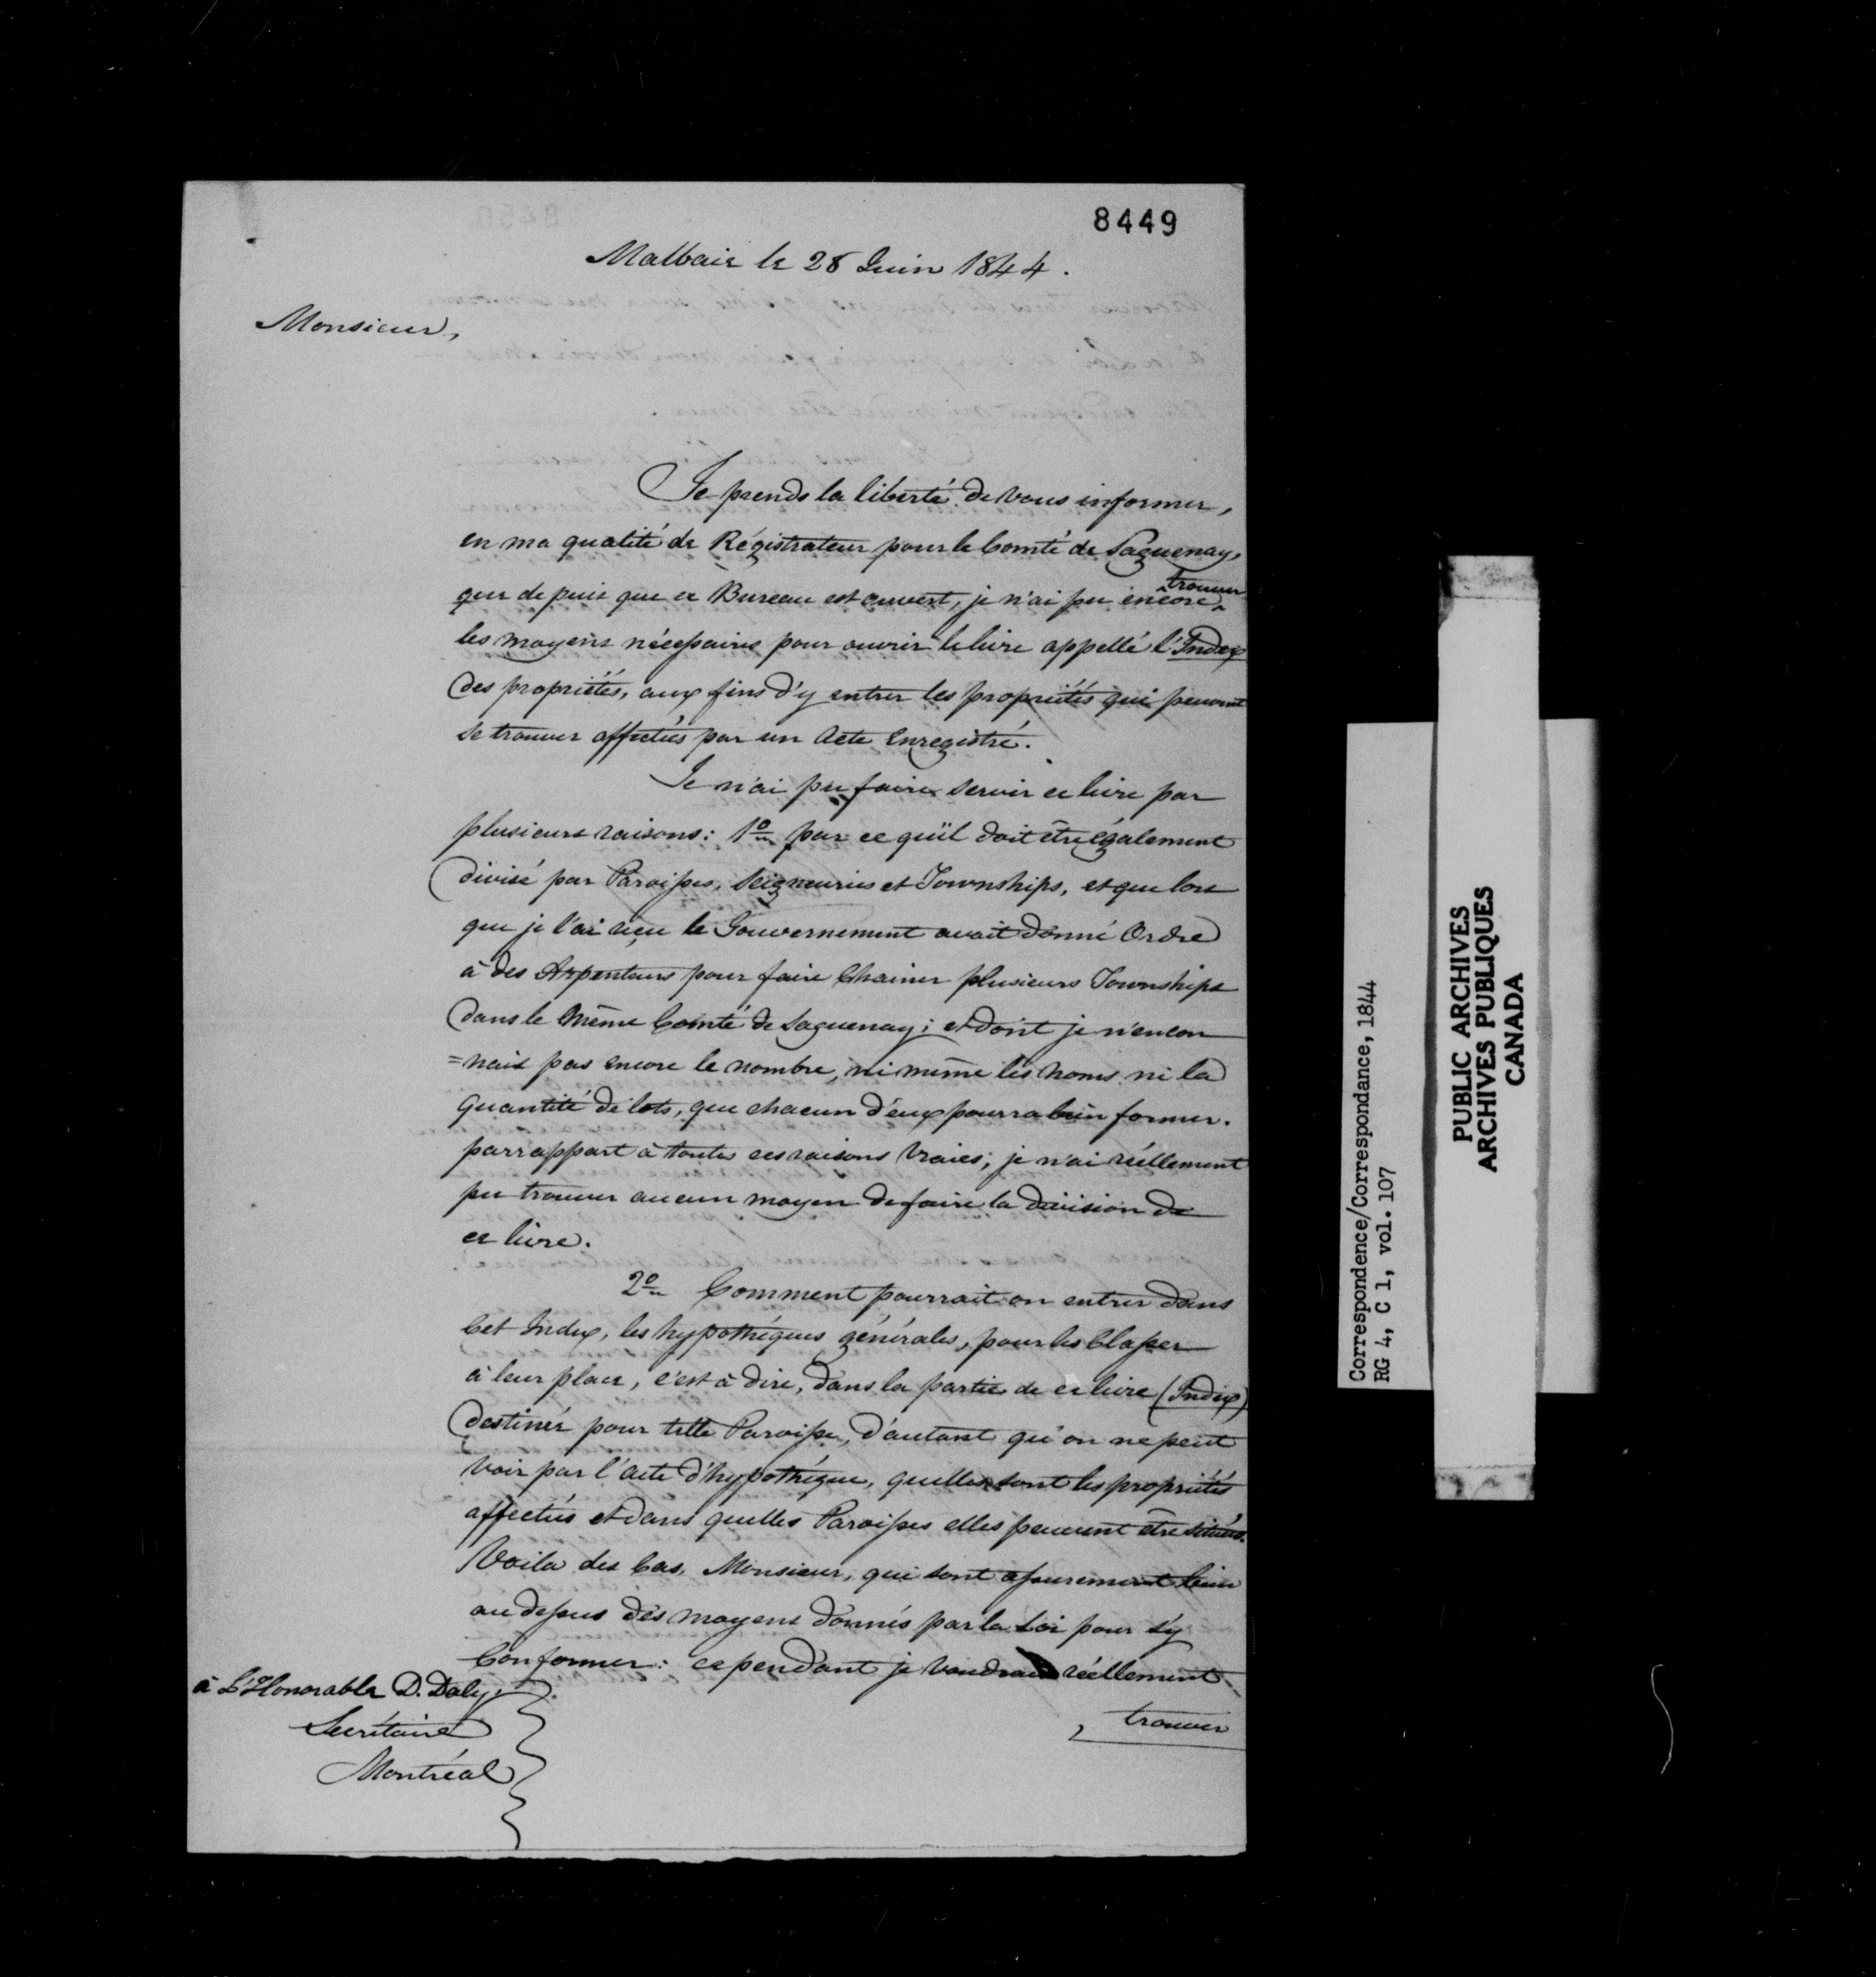 8449
Malbaie le 28 Juin 1844.
Monsieur,
Je prends la liberté de vous informer,
en ma qualité de Régistrateur pour le Comté de Saguenay,
que depuis que ce Bureau est ouvert, je n'ai pu encore trouver
les moyens nécessaires pour ouvrir le livre appellé l'Index
des propriétés, aux fins d'y entrer les propriétés qui peuvent
se trouver affectées par un Acte Enregistré.
Je n'ai pu faire servir ce livre par
plusieurs raisons: 1o par ce qu'il doit être également
divisé par Paroisses, Seigneuries et Townships, et que lors
que je l'ai reçu le Gouvernement avait donné Ordre
à des Arpenteurs pour faire Chainer plusieurs Townships
dans le même Comté de Saguenay; et dont je n'en con
=nais pas encore le nombre, ni même les noms ni la
quantité de lots, que chacun d'eux pourra bien former.
par rapport à toutes ces raisons vraies; je n'ai réellement
pu trouver aucun moyen de faire la division de
ce livre.
2o Comment pourrait on entrer dans
Cet Index, les hypothéques générales, pour les Classer
à leur place, c'est à dire, dans la partie de ce livre (Index)
destinée pour telle Paroisse, d'autant qu'on ne peut
voir par l'acte d'hypothéque, quelles sont les propriétés
affectées et dans quelles Paroisses elles peuvent être situées.
Voila des Cas, Monsieur, qui sont assurement bien
au dessus des moyens donnés par la Loi pour s'y
Conformer: cependant je voudrais réellement
trouver
à L'Honorable D. Daly.
Secrétaire
Montréal
Correspondence/Correspondance, 1844
RG 4, C 1, vol. 107
PUBLIC ARCHIVES
ARCHIVES PUBLIQUES
CANADA